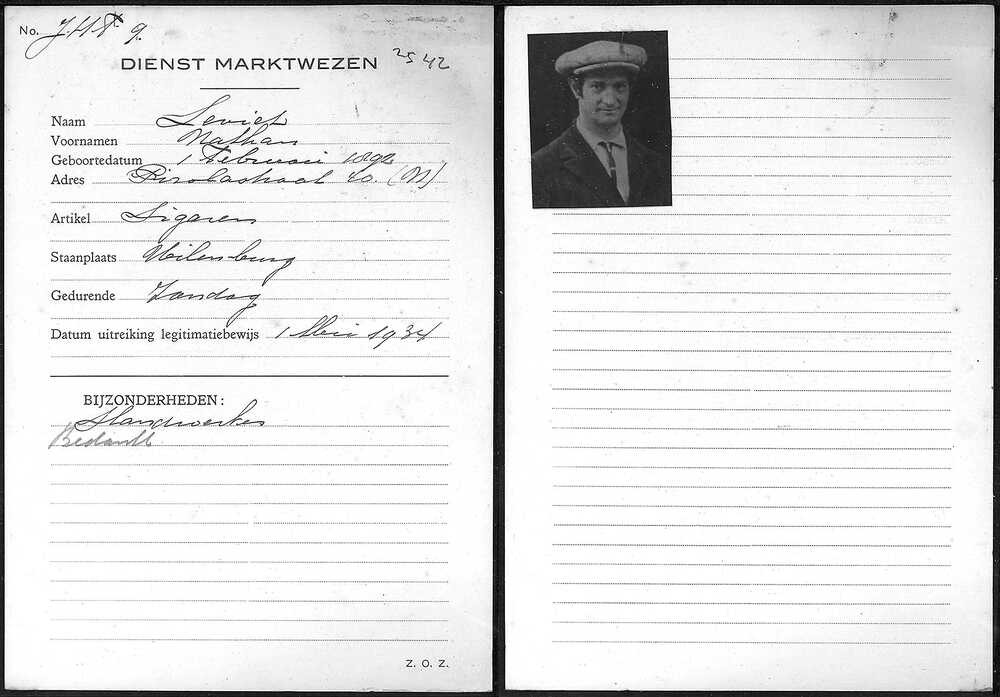 No. J.H.T. 9.
DIENST MARKTWEZEN 2542
Naam Leviet
Voornamen Nathan
Geboortedatum 1 Februari 1892
Adres 40. (N)
Artikel Sigaren
Staanplaats Uilenburg
Gedurende Zondag
Datum uitreiking legitimatiebewijs 1 Mei 1934
BIJZONDERHEDEN:
Handwerker
Bedankt
Z. O. Z.